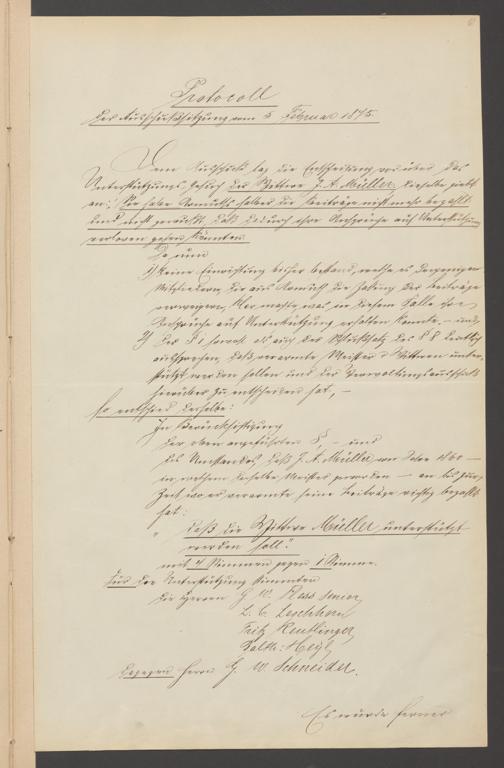 Protocoll
der Ausschußsitzung vom 5 Februar 1875.
Dem Ausschuß lag die Entscheidung vor über das
Unterstützungs-Gesuch der Wittwe J. A. Müller, dieselbe giebt
an: Sie habe Armuths halber die Beiträge nicht mehr bezahlt
und nicht gewußt, daß dadurch ihre Ansprüche auf Unterstützung
verloren gehen könnten
Da nun
1) keine Einrichtung bisher bestand, welche es denjenigen
Mitgliedern, die aus Armuth die Zahlung der Beiträge
verweigern, klar machte was in diesem Falle ihre
Ansprüche auf Unterstützung erhalten konnte, – und
2) Der § 1 sowohl als auch der Schlußsatz des § 8 deutlich
aussprechen, daß verarmte Meister & Wittwen unter-
stützt werden sollen und der Verwaltungsausschuß
hierüber zu entscheiden hat, –
so entschied derselbe:
In Berücksichtigung
der oben angeführten §, – und
des Umstandes, daß J. A. Müller von 1860 –
in welchem derselbe Meister geworden – an bis zur
Zeit wo er verarmte seine Beiträge richtig bezahlt
hat:
"daß die Wittwe Müller unterstützt
werden soll."
mit 4 Stimmen gegen 1 Stimme.
Für die Unterstützung stimmten
die Herren G. W. Senior
L. C.
Fritz Reutlinger
Balth: Heyl
Dagegen Herr G. W. Schneider.
Es wurde ferner